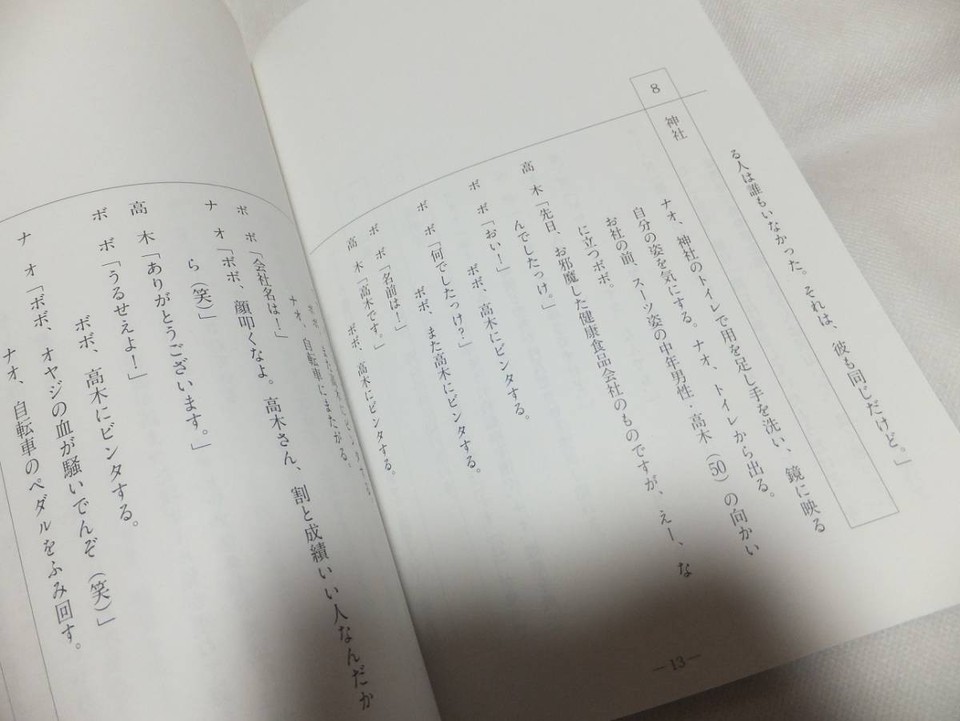 る人は誰もいなかった。それは、彼も同じだけど。」
8
神社
ナオ、神社のトイレで用を足し手を洗い、鏡に映る
自分の姿を気にする。ナオ、トイレから出る。
お社の前、スーツ姿の中年男性・高木（50）の向かい
に立つボボ。
高　木「先日、お邪魔した健康食品会社のものですが、えー、な
んでしたっけ。」
ボ　ボ「おい！」
ボボ、高木にビンタする。
ボ　ボ「何でしたっけ？」
ボボ、また高木にビンタする。
ボ　ボ「名前は！」
高　木「高木です。」
ボボ、高木にビンタする。
―13―
ボ　ボ「会社名は！」
ボボ、また高木にビンタする。
ナオ、自転車にまたがる。
ナ　オ「ボボ、顔叩くなよ。高木さん、割と成績いい人なんだか
ら（笑）」
高　木「ありがとうございます。」
ボ　ボ「うるせえよ！」
ボボ、高木にビンタする。
ナ　オ「ボボ、オヤジの血が騒いでんぞ（笑）」
ナオ、自転車のペダルをふみ回す。